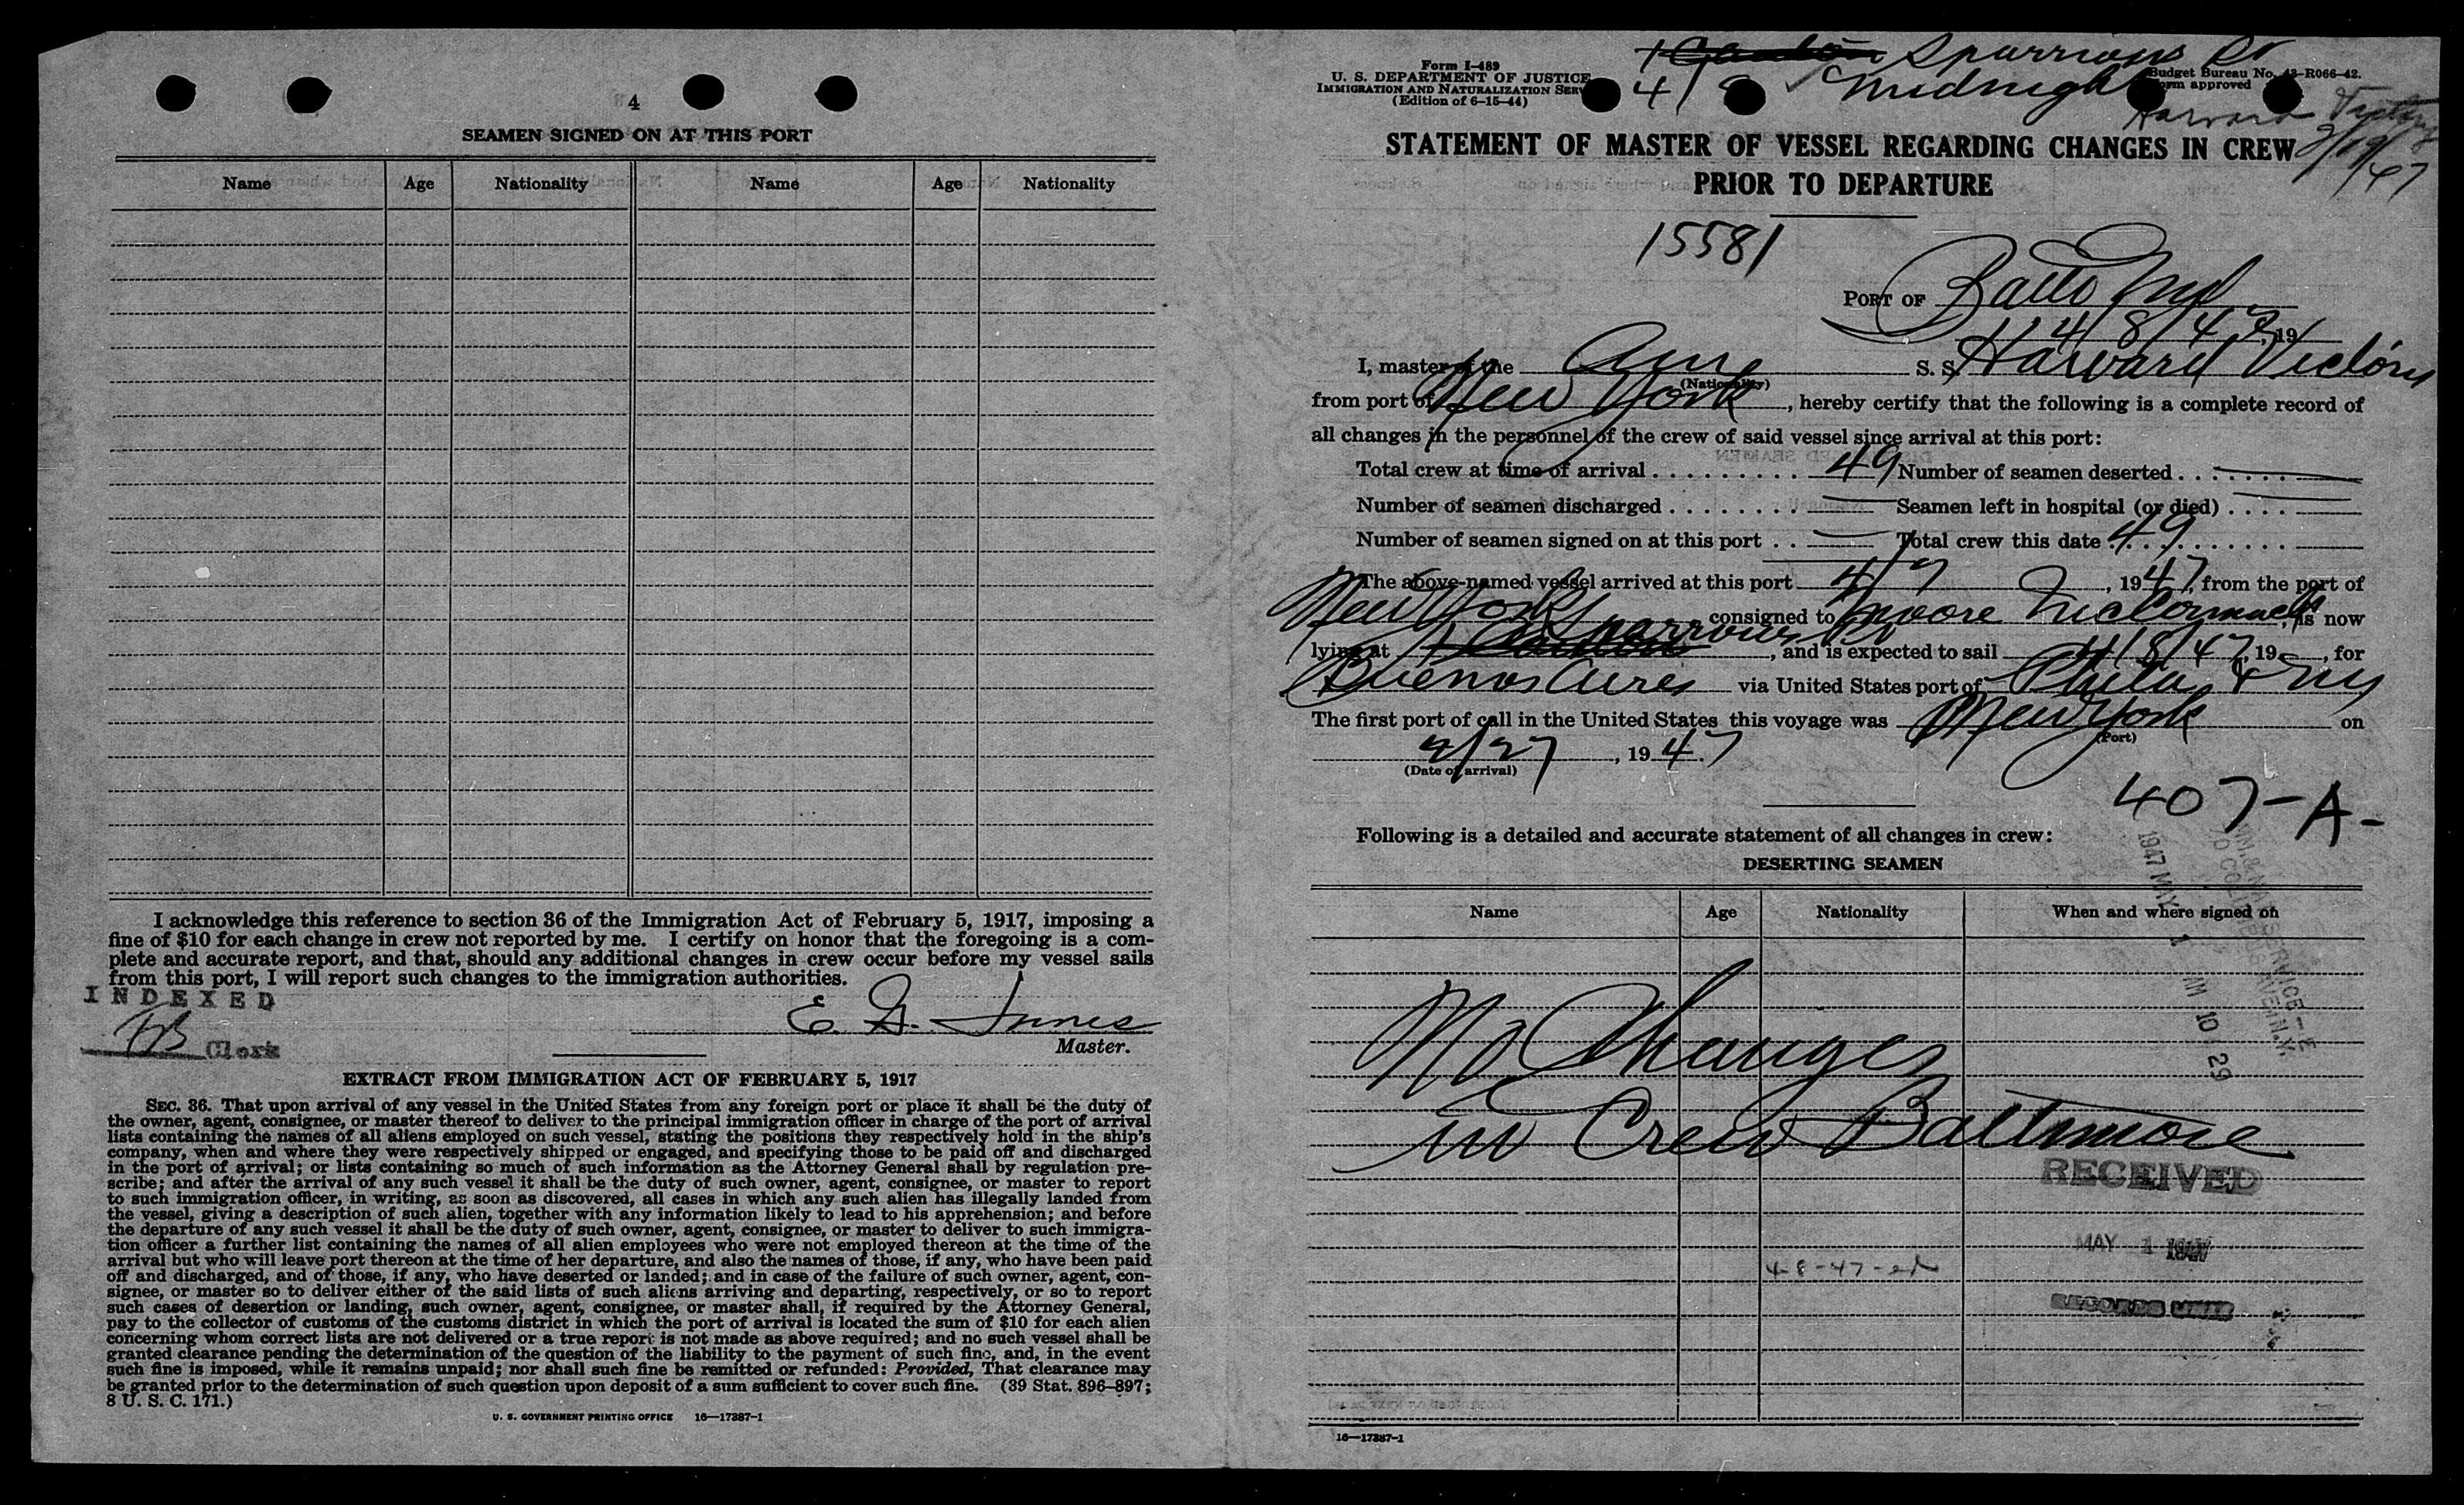 4
SEAMEN SIGNED ON AT THIS PORT
Name Age Nationality Name Age Nationality
I acknowledge this reference to section 36 of the Immigration Act of February 5, 1917, imposing a
fine of $10 for each change in crew not reported by me. I certify on honor that the foregoing is a com-
plete and accurate report, and that, should any additional changes in crew occur before my vessel sails
from this port, I will report such changes to the immigration authorities.
INDEXED
Clerk
E. G. Innes
Master.
EXTRACT FROM IMMIGRATION ACT OF FEBRUARY 5, 1917
SEC. 36. That upon arrival of any vessel in the United States from any foreign port or place it shall be the duty of
the owner, agent, consignee, or master thereof to deliver to the principal immigration officer in charge of the port of arrival
lists containing the names of all aliens employed on such vessel, stating the positions they respectively hold in the ship's
company, when and where they were respectively shipped or engaged, and specifying those to be paid off and discharged
in the port of arrival; or lists containing so much of such information as the Attorney General shall by regulation pre-
scribe; and after the arrival of any such vessel it shall be the duty of such owner, agent, consignee, or master to report
to such immigration officer, in writing, as soon as discovered, all cases in which any such alien has illegally landed from
the vessel, giving a description of such alien, together with any information likely to lead to his apprehension; and before
the departure of any such vessel it shall be the duty of such owner, agent, consignee, or master to deliver to such immigra-
tion officer a further list containing the names of all alien employees who were not employed thereon at the time of the
arrival but who will leave port thereon at the time of her departure, and also the names of those, if any, who have been paid
off and discharged, and of those, if any, who have deserted or landed; and in case of the failure of such owner, agent, con-
signee, or master so to deliver either of the said lists of such aliens arriving and departing, respectively, or so to report
such cases of desertion or landing, such owner, agent, consignee, or master shall, if required by the Attorney General,
pay to the collector of customs of the customs district in which the port of arrival is located the sum of $10 for each alien
concerning whom correct lists are not delivered or a true report is not made as above required; and no such vessel shall be
granted clearance pending the determination of the question of the liability to the payment of such fine, and, in the event
such fine is imposed, while it remains unpaid; nor shall such fine be remitted or refunded: Provided, That clearance may
be granted prior to the determination of such question upon deposit of a sum sufficient to cover such fine. (39 Stat. 896–897;
8 U. S. C. 171.)
U. S. GOVERNMENT PRINTING OFFICE 16—17387-1
Sparrows Pt
Form I-489
U. S. DEPARTMENT OF JUSTICE
IMMIGRATION AND NATURALIZATION SERV
(Edition of 6-15-44)
4/8 Midnight
Budget Bureau No. 43-R066-42.
Form approved
Harvard Victory
2/19/47
STATEMENT OF MASTER OF VESSEL REGARDING CHANGES IN CREW
PRIOR TO DEPARTURE
15581
PORT OF Balto Md.
4/8/47, 19
I, master of the Am S. S. Harvard Victory
(Nationality)
from port of New York, hereby certify that the following is a complete record of
all changes in the personnel of the crew of said vessel since arrival at this port:
Total crew at time of arrival 49 Number of seamen deserted —
Number of seamen discharged — Seamen left in hospital (or died) —
Number of seamen signed on at this port — Total crew this date 49
The above-named vessel arrived at this port 4/7, 1947, from the port of
New York consigned to Moore McCormack, is now
lying at Sparrows Pt, and is expected to sail 4/8/47, 19, for
Buenos Aires via United States port of Phila & NY
The first port of call in the United States this voyage was New York on
(Port)
/27, 1947
(Date of arrival)
407-A-
Following is a detailed and accurate statement of all changes in crew:
DESERTING SEAMEN
Name Age Nationality When and where signed on
1947 MAY 1 AM 10 29
No Changes
in Crew Baltimore
RECEIVED
MAY 1 1947
4-8-47-
RECORDS UNIT
16—17387-1